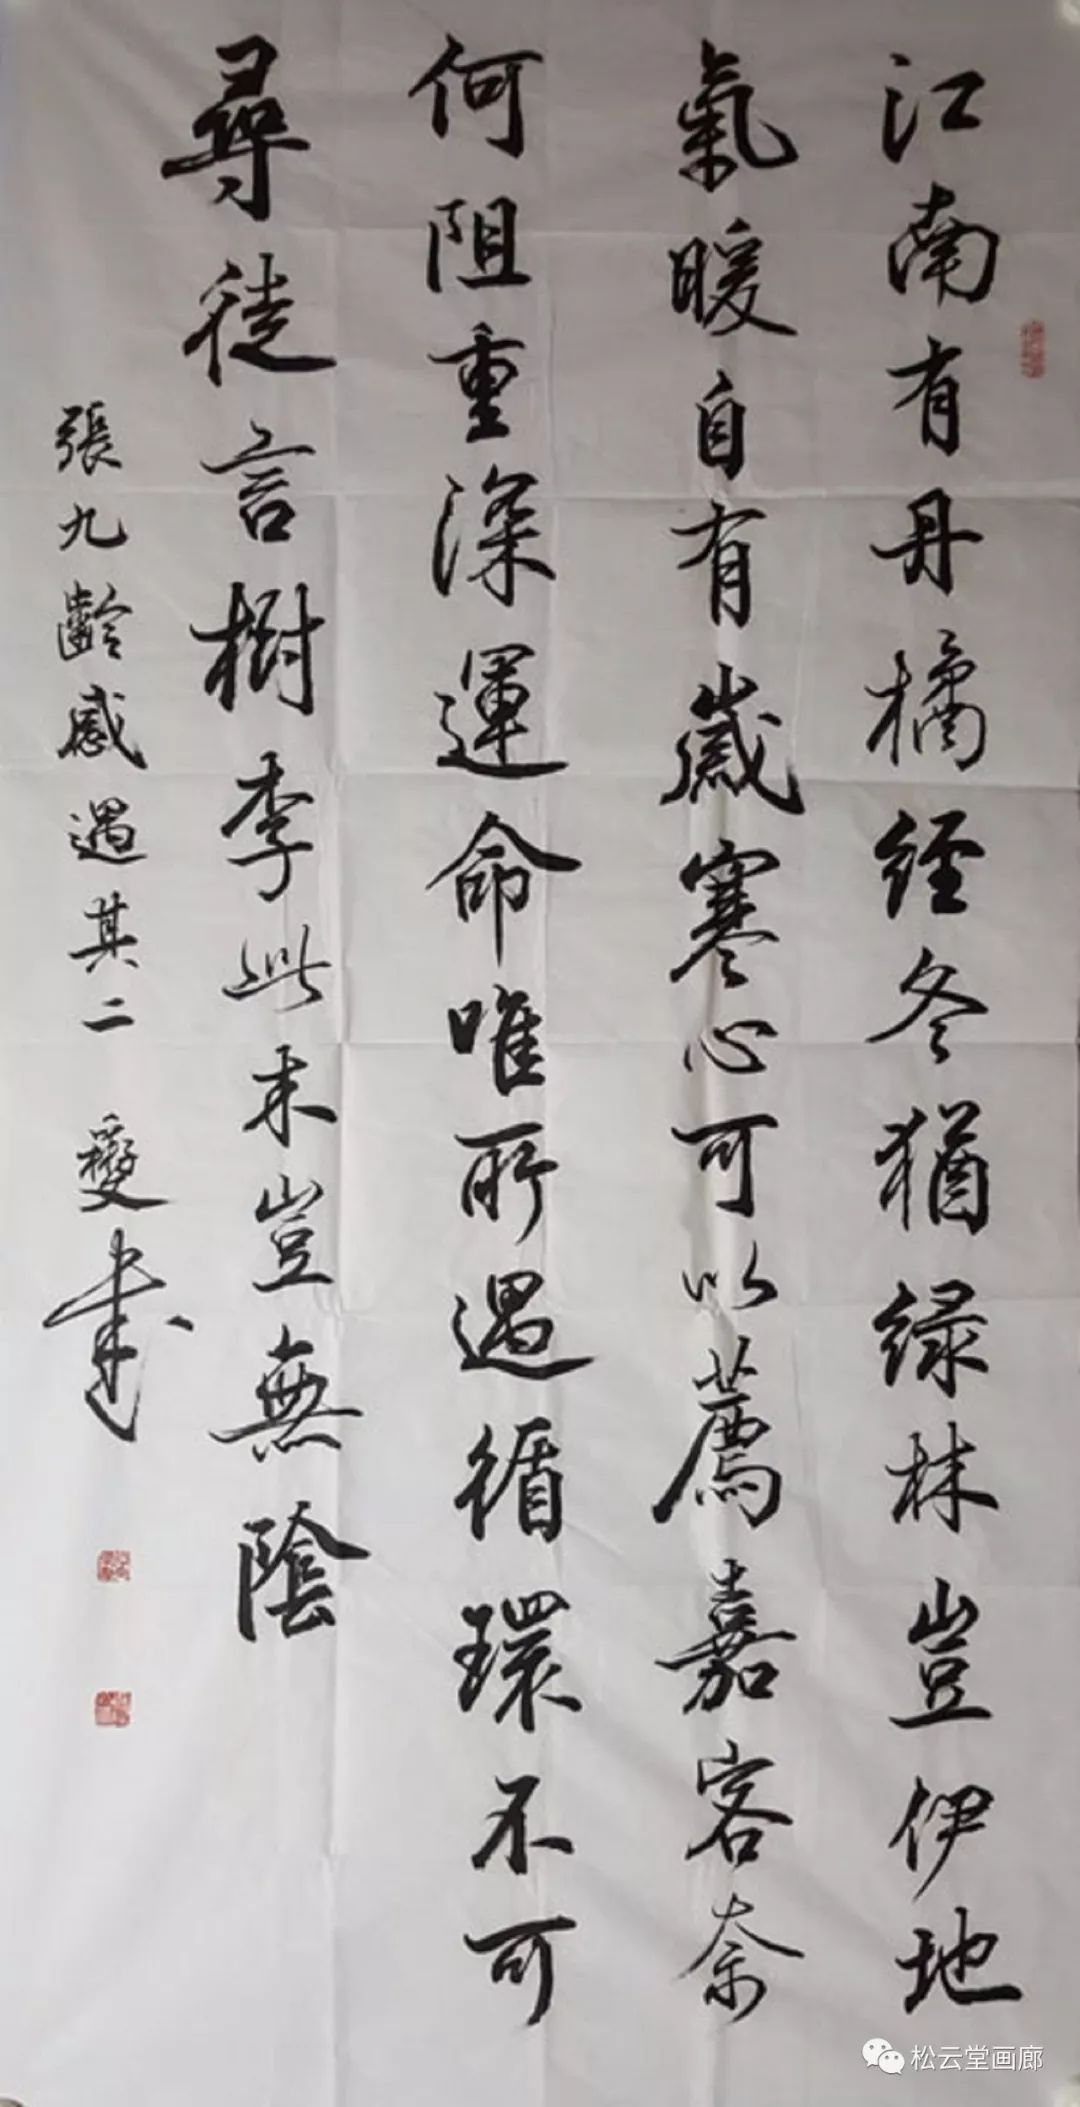 江南有丹橘經冬猶緑林豈伊地
氣暖自有歲寒心可以薦嘉客奈
何阻重深運命唯所遇循環不可
尋徒言樹李此木豈無陰
張九齡感遇其二
松云堂画廊